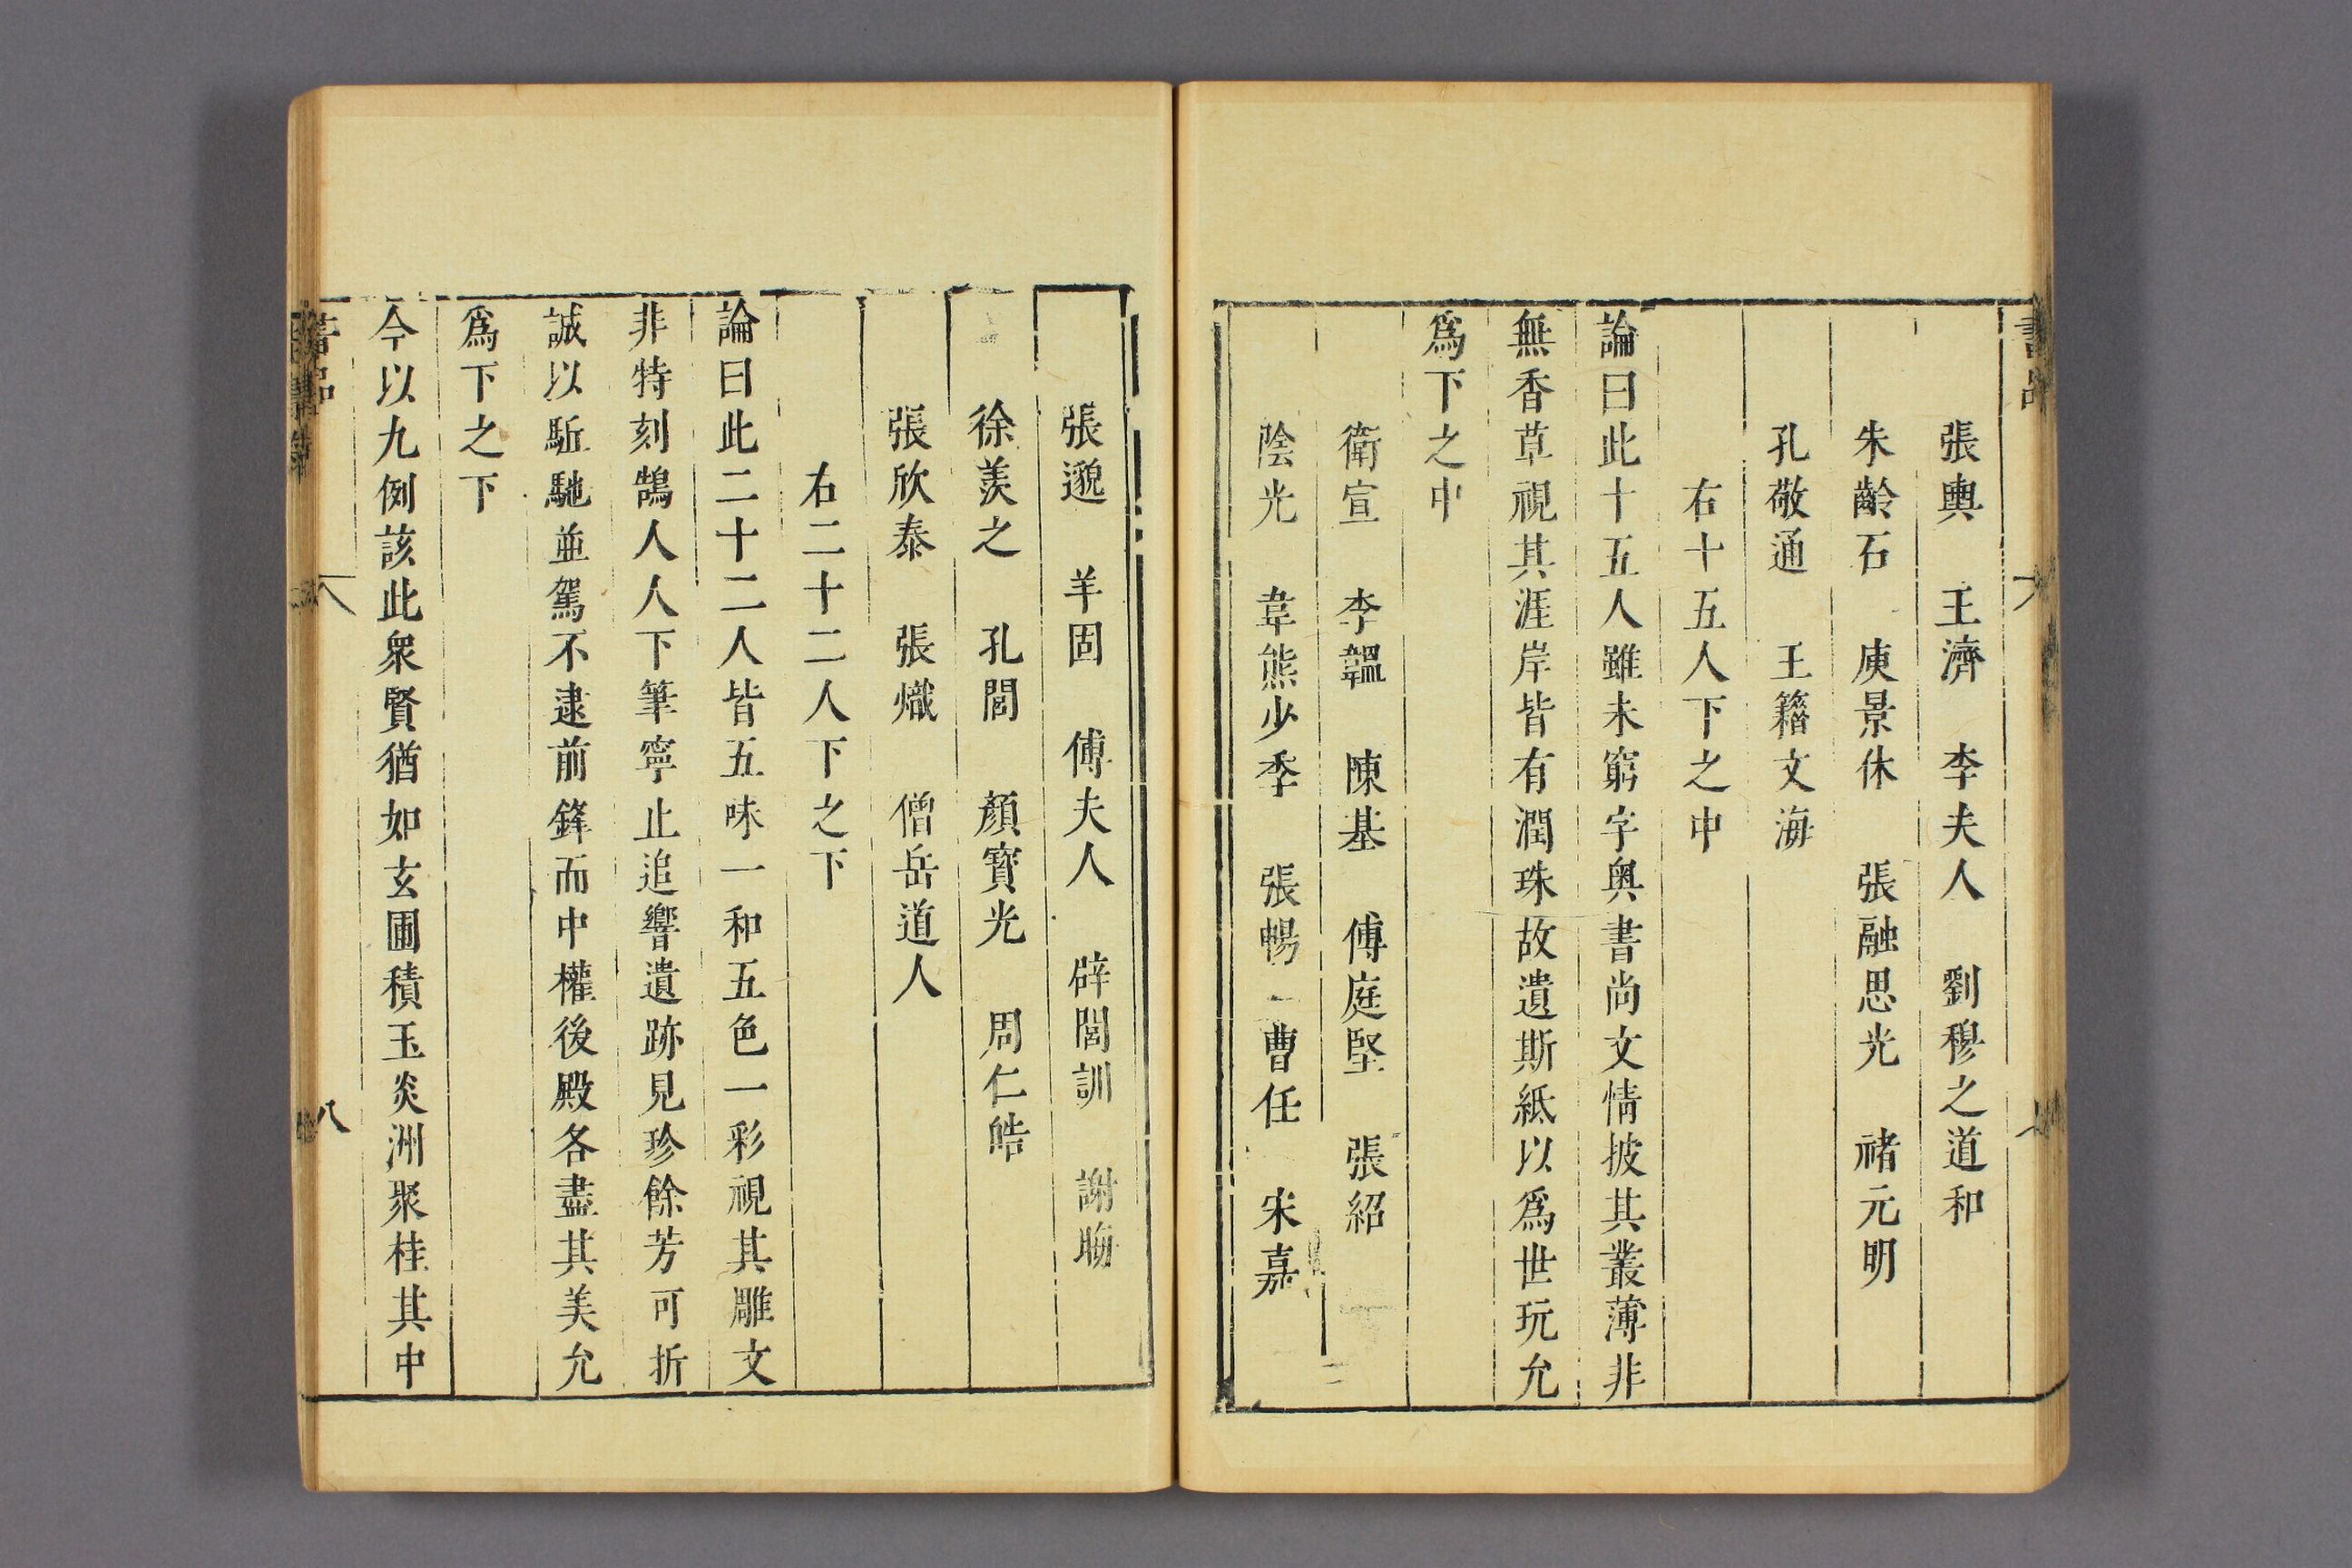 張輿　王濟　李夫人　劉穆之道和
朱齡石　庾景休　張融思光　禇元明
孔敬通　王籍文海
右十五人下之中
論曰此十五人雖未窮字奧書尚文情披其叢薄非
無香草視其涯岸皆有潤珠故遺斯紙以爲世玩允
爲下之中
衛宣　李韞　陳基　傅庭堅　張紹
陰光　韋熊少季　張暢　曹任　宋嘉
張邈　羊固　傅夫人　辟閭訓　謝晦
徐羨之　孔閭　顏寶光　周仁皓
張欣泰　張熾　僧岳道人
右二十二人下之下
論曰此二十二人皆五味一和五色一彩視其雕文
非特刻鵠人人下筆寧止追響遺跡見珍餘芳可折
誠以駈馳並駕不逮前鋒而中權後殿各盡其美允
爲下之下
今以九例該此衆賢猶如玄圃積玉炎洲聚桂其中
書品　八